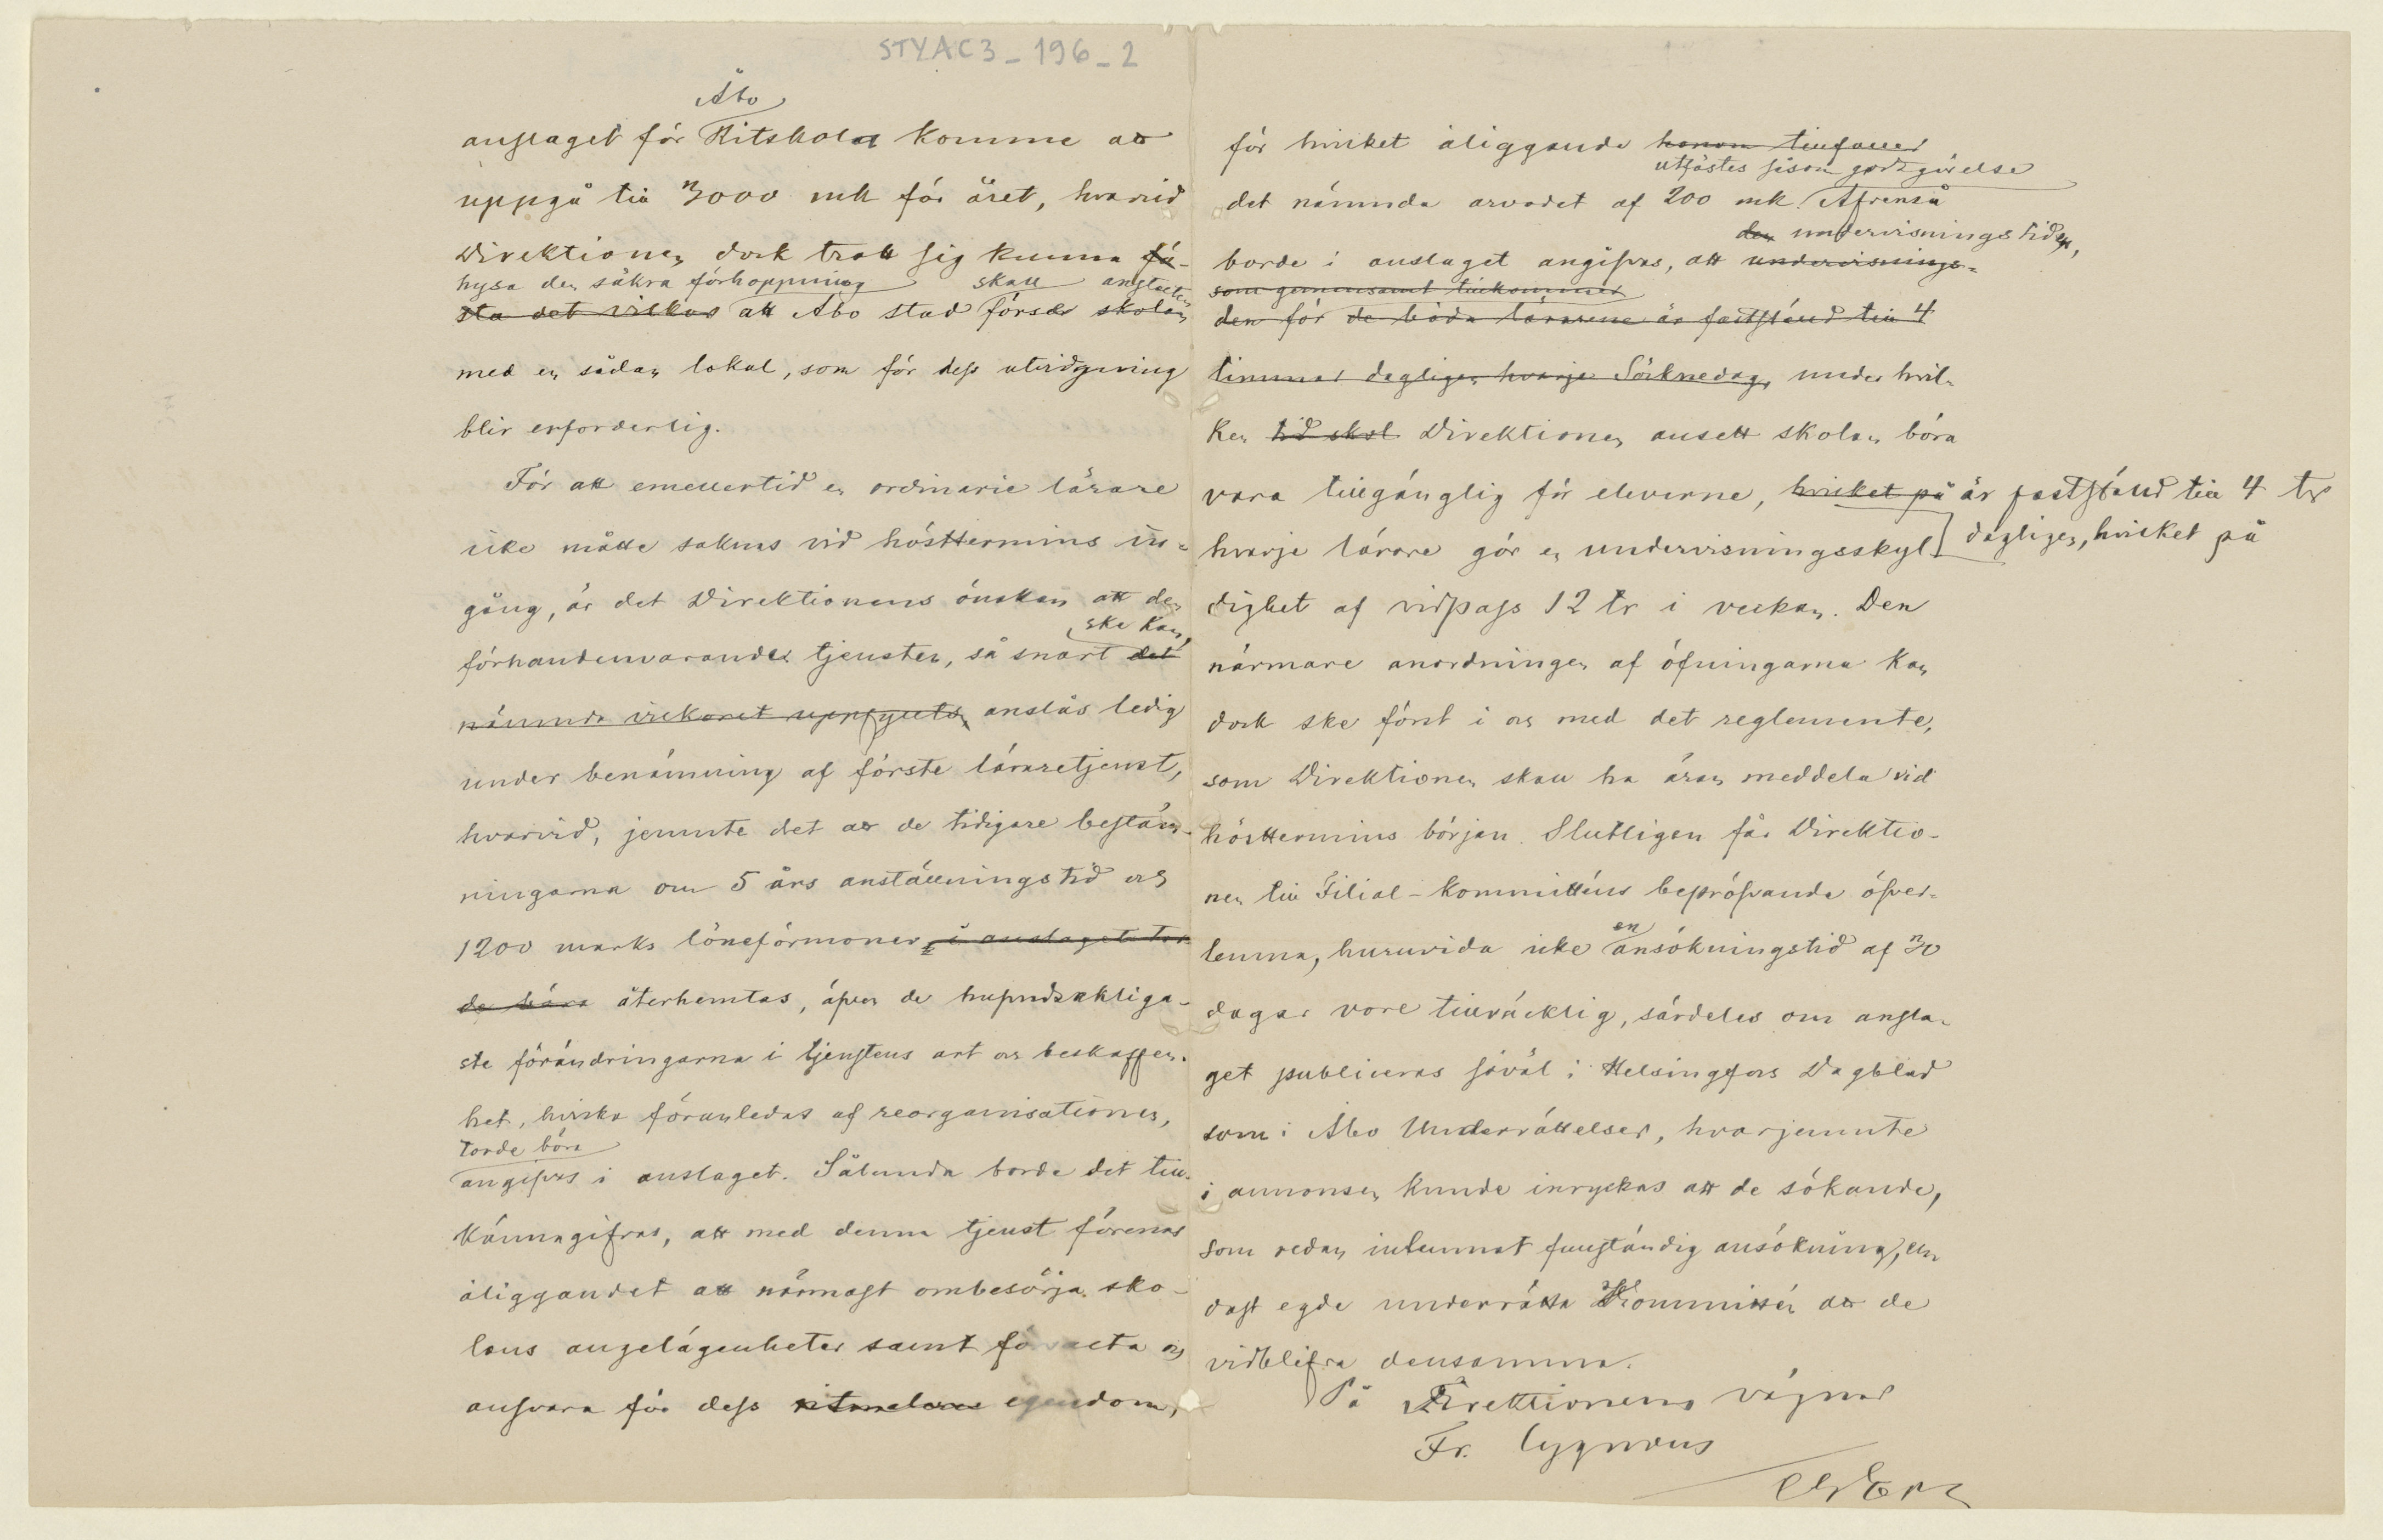 STYAC3_196_2
Åbo
anslaget för Ritskola komme att
uppgå till 3000 mk för året, hvarvid
Direktionen dock trott sig kunna få-
hysa den säkra förhoppning skall anslaeten
sta det vilkor att Åbo stad förser skolan
med en sådan lokal, som för dess utvidgning
blir erforderlig.
För att emellertid en ordinarie lärare
icke måtte saknas vid höstterminens in-
gång, är det Direktionens önskan att den
ske kan,
förhandenvarande tjensten, så snart det
nämnda vilkoret uppfyllts, anslås ledig
under benämning af förste läraretjenst,
hvarvid, jemnte det att de tidigare bestäm-
ningarna om 5 års anställningstid och
1200 marks löneförmoner, i anslaget tor
de böra återhemtas, äfven de hufvudsakliga-
ste förändringarna i tjenstens art och beskaffen-
het, hvilka föranledas af reorganisationen,
torde böra
angifvas i anslaget. Sålunda borde det till-
kännagifvas, att med denna tjenst förenas
åliggandet att närmast ombesörja sko-
lans angelägenheter samt förvalta och
ansvara för dess egendom,
för hvilket åliggande honom tillfaller
utfästes såsom godtgörelse
det nämnda arvodet af 200 mk. Äfvenså
den undervisningstiden,
borde i anslaget angifvas, att undervisnings-
som gemensamt tillkommer
den för de båda lärarene är fastställd till 4
timmar dagligen hvarje Söknedag, under hvil-
ken tid skol Direktionen ansett skolan böra
vara tillgänglig för eleverne, hvilket på är fastställd till 4 tr
hvarje lärare gör en undervisningsskyl dagligen, hvilket på
dighet af vidpass 12 tr i veckan. Den
närmare anordningen af öfningarna kan
dock ske först i och med det reglemente,
som Direktionen skall ha äran meddela vid
höstterminens början. Slutligen får Direktio-
nen till Filial-kommitténs bepröfvande öfver-
en
lemna, huruvida icke ansökningstid af 30
dagar vore tillräcklig, särdeles om ansla-
get publiceras såväl i Helsingfors Dagblad
som i Åbo Underrättelser, hvarjemnte
i annonsen kunde inryckas att de sökande,
som redan inlemnat fullständig ansökning, en
dast egde underrätta Kommittén att de
vidblifva densamma.
På Direktionens vägnar
Fr. Cygnæus